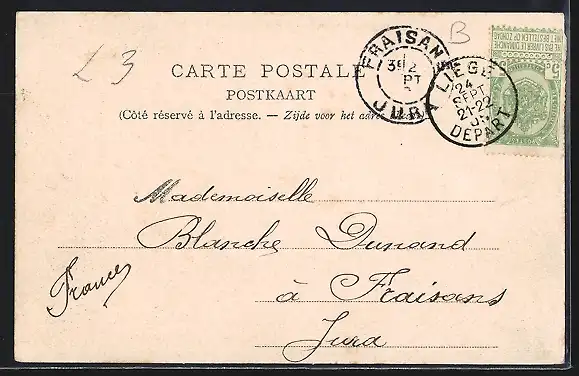 L 3
B
CARTE POSTALE
POSTKAART
(Côté réservé à l'adresse. — Zijde voor het adres
FRAISANS
JURA
LIÈGE
24
SEPT
21-22
DEPART
NE PAS LIVRER LE DIMANCHE
NIET BESTELLEN OP ZONDAG
5
Mademoiselle
Blanche Dunand
à Fraisans
Jura
France